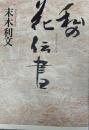 私の
花伝書
末木利文